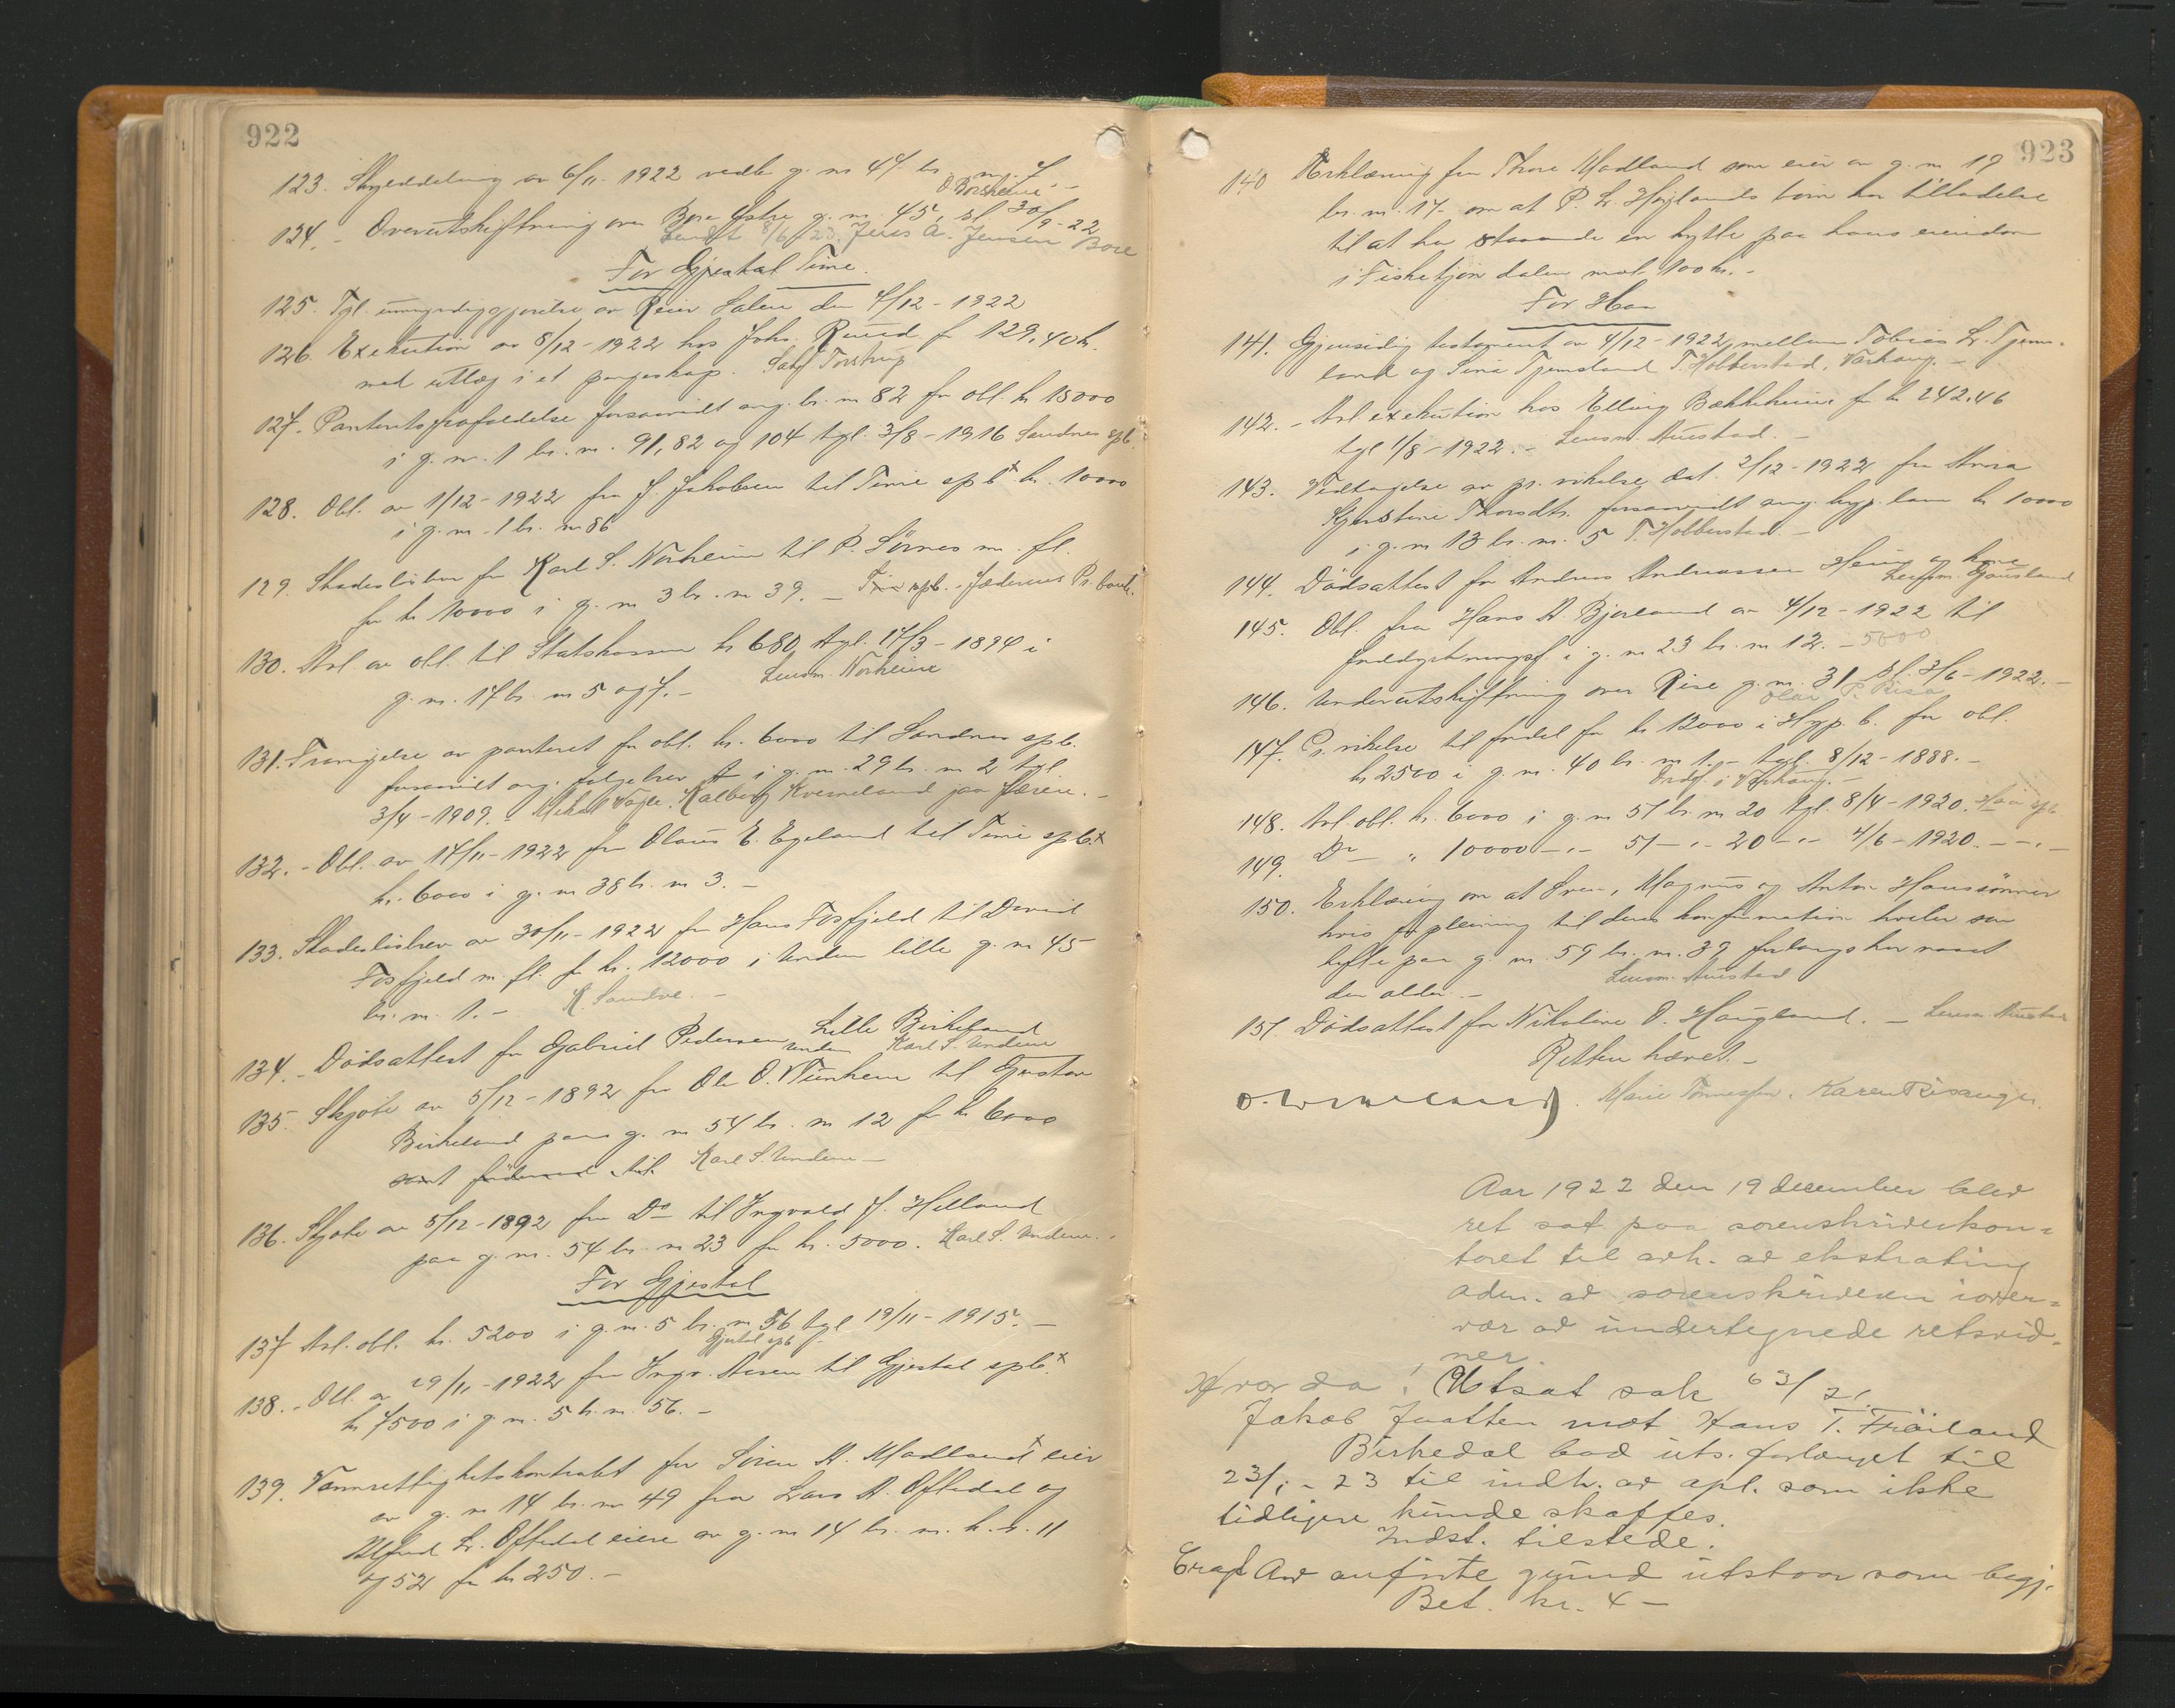 922
123. Skylddeling av 6/11-1922 vedk g. nr 47 br. nr. 7
O Borsheim
124. - Overutskiftning over Bore Østre g. nr. 45, sl. 30/9-22
Sendt 8/6 23. Jens A. Jensen Bore
For Gjestal Time.
125. Tgl. umyndiggjørelse av Reier Salen den 4/12-1922
126. Exekution av 8/12-1922 hos Johs. Ruud for 129,40 kr.
med utlæg i et pengeskap. Sakf Torstrup
127. Panterets frafaldelse forsaavidt ang. br. nr 82 for obl. kr 15000
i g. nr. 1 br. nr. 91, 82 og 104 tgl. 3/8-1916 Sandnes spb.
128. Obl. av 1/12-1922 fra J. Jakobsen til Time spb kr. 10000
i g. nr. 1 br. nr 86
129. Skadesløsbrev fra Karl S. Norheim til P. Sørnes m. fl.
for kr 10000 i g. nr 3 br. nr 39. - Time spb. - Jæderens Pr. bank.
130. Avl av obl. til Statskassen kr 680, tgl. 17/3-1894 i
g. nr. 17 br. nr 5 og 7. - Lensm. Norheim
131. Fravigelse av panteret for obl. kr. 6000 til Sandnes spb.
forsaavidt ang. følgebrev i g. nr. 29 br. nr 2 tgl
3/4-1909. - Mikal Vagle, Kalberg Kverneland paa Jæren. -
132. - Obl. av 14/11-1922 fra Olaus E. Egeland til Time spb.
kr. 6000 i g. nr 38 br. nr 3. -
133. Skadesløsbrev av 30/11-1922 fra Hans Fosfjeld til David
Fosfjeld m. fl. for kr. 12000 i Undem lille g. nr 45
br. nr. 1. - K. Sandve. -
134. - Dødsattest for Gabriel Pedersen Lille Birkeland
Undem Karl S. Undem
135. Skjøte av 5/12-1892 fra Ole O. Tunheim til Gustav
Birkeland paa g. nr 54 br. nr 12 for kr 6000
samt føderaad til Karl S. Undem -
136. Skjøte av 5/12-1892 fra Do til Ingvald J. Helland
paa g. nr. 54 br. nr 23 for kr. 5000. Karl S. Undem.
For Gjestal
137 Avl. obl. kr. 5200 i g. nr. 5 br. nr 56 tgl 19/11-1915. -
Gjestal spb
138. - Obl. av 29/11-1922 fra Ingv. Aasen til Gjestal spb.
kr 7500 i g nr. 5 br. nr. 56. -
139. Vannrettighetskontrakt for Søren A. Madland eier
av g. nr 14 br. nr 49 fra Lars A. Oftedal og
Alfred L. Oftedal eiere av g. nr 14 br. nr. h. h. 11
og 52 for kr 250. -
923
140 Erklæring fra Thore Madland som eier av g. nr 19
br. nr. 17 - om at P. L. Høylands børn har tilladelse
til at ha staaende en hytte paa hans eiendom
i Fisketjøn dalen mot 100 kr. -
For Haa
141. Gjensidig testament av 4/12-1922 mellem Tobias L. Tjems-
land og Sina Tjemsland T. Holberstad, Varhaug. -
142. - Avl exekution hos Elling Bækkheim for kr 242.46
tgl 1/8-1922. - Lensm. Austad. -
143. Vedtagelse av pr. vikelse dat. 2/12-1922 fra Anna
Kjerstine Thorsdtr. forsaavidt ang. hyp. laan kr 10000
i g. nr 13 br. nr. 5 T. Holberstad. -
144. Dødsattest for Andreas Andreassen Heng og kone
Lensm. Gausland
145. Obl. fra Hans A. Bjorland av 4/12-1922 til
Inddyrkningsf. i g. nr 23 br. nr 12. - 5000
146. Underutskiftning over Rise g. nr. 31 sl. 3/6-1922. -
Olav P. Risa
147. Pr. vikelse til fordel for kr 12000 i Hyp. b. for obl.
kr 2500 i g. nr. 40 br. nr 1. - tgl. 8/12-1888. -
Ordf. i Varhaug. -
148. Avl. obl. kr. 6000 i g. nr 51 br. nr 20 tgl. 8/4-1920. Haa spb
149. Do - " 10000 - " - 51 - " - 20 - " - 4/6-1920. - " -
150. Erklæring om at Sven, Magnus og Anton Hanssønner
hvis opleining til deres konfirmation hviler som
hefte paa g. nr. 59 br. nr. 39 forlængst har naaet
den alder. - Lensm. Austad
151 Dødsattest for Nikoline O. Haugland. - Lensm. Austad
Retten hævet. -
Marie Tønnessen. Karen Risanger.
Aar 1922 den 19 december blev
ret sat paa sorenskriverkon-
toret til avh. av ekstrating
adm. av sorenskriveren i over-
vær av undertegnede retsvid-
ner.
Hvorda! Utsat sak 63/21
Jakob Jaatten mot Hans T. Frøiland
Birkedal bad uts. forlænget til
23/1-23 til indh. av opl. som ikke
tidligere kunde skaffes.
Indst. tilstede.
Eragt Av anførte grund utstaar som begj.
Bet. kr. 4 -